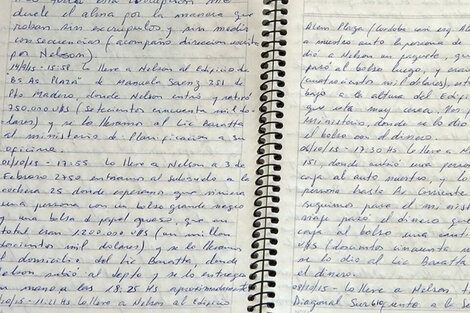 duele el alma por la manera que
roban sin escrupulos y sin medir
consecuencias (acompaño direccion escrita
por Nelson).
15:58. Lo lleve a Nelson al Edificio de
"BS AS Plaza" de Manuela Saenz 351 de
Pto Madero, donde Nelson entró y retiró
750.000 U$S (setecientos cincuenta mil do-
lares) y se lo llevamos al Lic Baratta
al ministerio de Planificacion a su
oficina.
01/10/15 - 17:55 Lo lleve a Nelson a 3 de
Febrero 2750 entramos al Subsuelo a la
cochera 25 donde esperamos que viniera
una persona con un bolso grande negro
y una bolsa de papel grueso que en
total eran 1.200.000 U$S (un millon
doscientos mil dolares) y se lo llevamos
al domicilio del Lic Baratta, donde
Nelson subió al depto y se lo entregó
en mano a las 18:25 HS aproximadamente
/10/15 - 11:21 Hs Lo lleve a Nelson al Edificio
Alem Plaza (Cordoba
a nuestro auto la persona de
dio a Nelson un paquete, que
pasó al bolso luego, y
mil dolares),
bajo a la altura del Edificio
que esta muy cerca.
ministerio, donde se lo dio
el bolso con el dinero
06/10/15 - 17:30 Hs Lo lleve a N
151, donde subió una perso
caja al auto nuestro, y lo
persona hasta Av Corrientes
seguimos para el mi
viaje pasó el dinero que
caja al bolso una
U$S (doscientos cincuenta
se lo dio al Lic Baratta
el dinero.
/10/15 - Lo lleve a Nelson
Diagonal Sur 619 frente a la